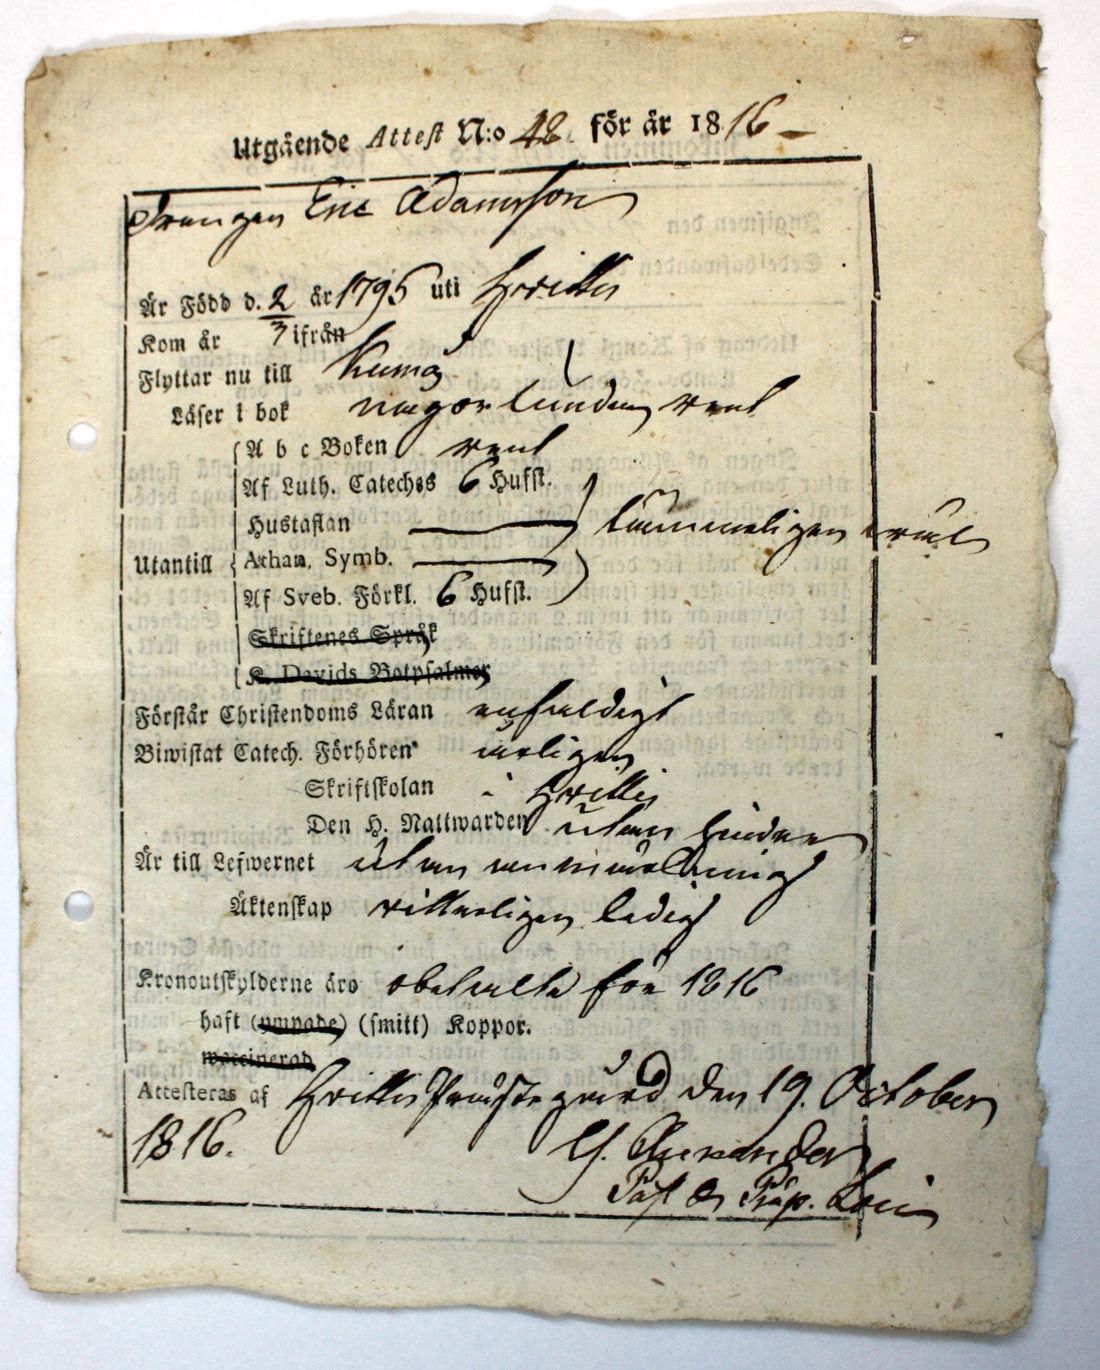 Utgående Attest N:o 48 för år 1816
Drengen Eric Adamsson
Är Född d. 2/3 år 1795 uti Hvittis
Kom år ifrån
Flyttar nu till Kumo
Läser i bok någorlunda rent
A b c Boken rent
Af Luth. Cateches 6 Hufst.
Hustaflan tämmeligen väl
Utantill Athan. Symb.
Af Sveb. Förkl. 6 Hufst.
Skriftenes Språk
K. Davids Botpsalmer
Förstår Christendoms Läran enfaldigt
Biwistat Catech. Förhören årligen
Skriftskolan i Hvittis
Den H. Nattwarden utan hinder
Är till Lefwernet utan anmärkning
Äktenskap vitterligen ledig
Kronoutskylderne äro obetalte för 1816
haft (ympade) (smitt) Koppor.
waccinerad
Attesteras af Hvittis Prästegård den 19. October
1816.
Past. Präp.